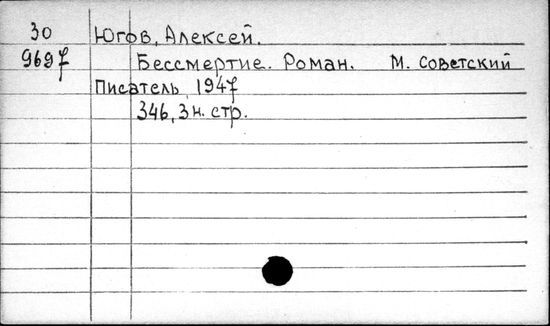 30 Югов, Алексей.
9697 Бессмертие. Роман. М. Советский
Писатель, 1947
346, 3 н. стр.